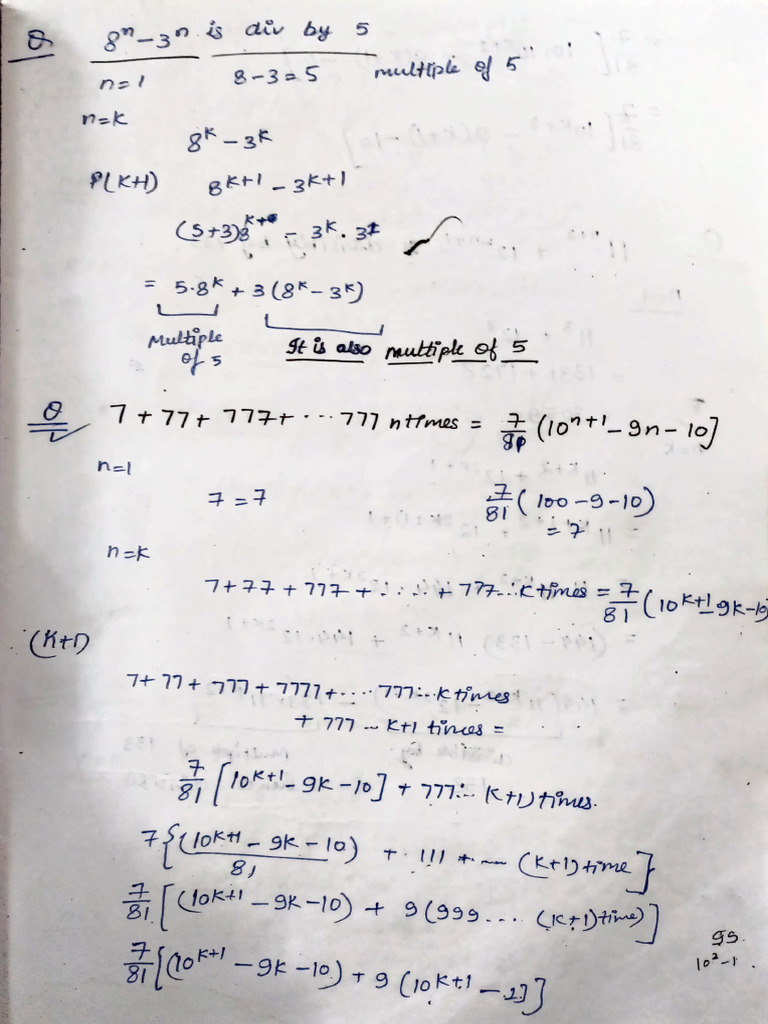 Q 8^n - 3^n is div by 5
n=1 8-3=5 multiple of 5
n=K
8^K - 3^K
P(K+1) 8^{K+1} - 3^{K+1}
(5+3)8^K - 3^K . 3^1
= 5.8^K + 3(8^K - 3^K)
Multiple of 5 It is also multiple of 5
Q 7 + 77 + 777 + ... 777 n times = 7/81 (10^{n+1} - 9n - 10]
n=1
7 = 7 7/81 (100 - 9 - 10) = 7
n=K
7+77 + 777 + ..... + 777... K times = 7/81 (10^{K+1} - 9K - 10
(K+1)
7+ 77 + 777 + 7777 + .... 777... K times
+ 777 -- K+1 times =
7/81 [10^{K+1} - 9K - 10] + 777... (K+1) times.
7{(10^{K+1} - 9K - 10)/81 + 111 + ... (K+1) time}
7/81 [(10^{K+1} - 9K - 10) + 9(999... (K+1) time)]
7/81 [(10^{K+1} - 9K - 10) + 9(10^{K+1} - 1)]
99.
10^2 - 1